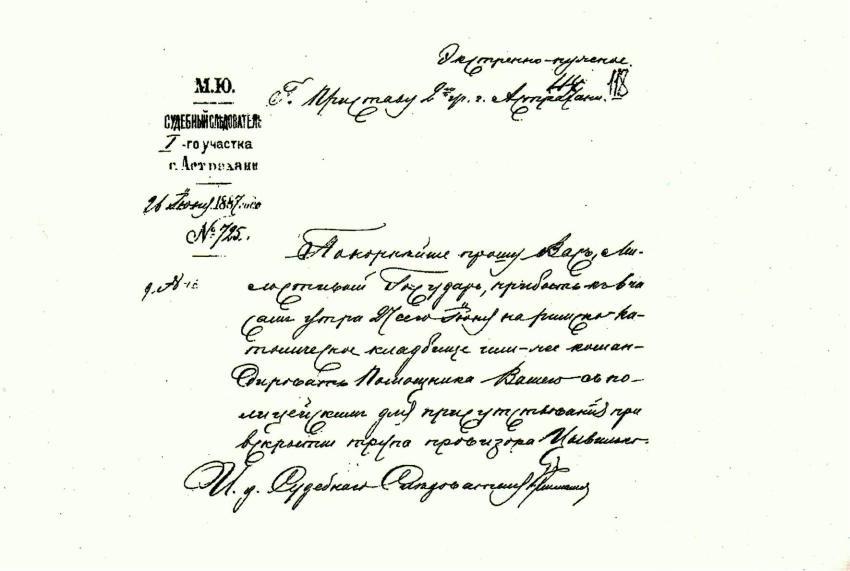 Экстренно-нужное.
118
Г. Приставу 2 ч. г. Астрахани.
М.Ю.
СУДЕБНЫЙ СЛѢДОВАТЕЛЬ
I-го участка
г. Астрахани
26 Іюня 1887 года
№ 725.
Покорнѣйше прошу Васъ, Ми-
лостивый Государь, прибыть къ 8 ча
сам утра 27 сего Іюня на римско-ка-
толическое кладбище или-же коман-
дировать Помощника Вашего съ по-
лицейскимъ для присутствованія при
вскрытіи трупа провизора
И. д. Судебнаго Слѣдователя